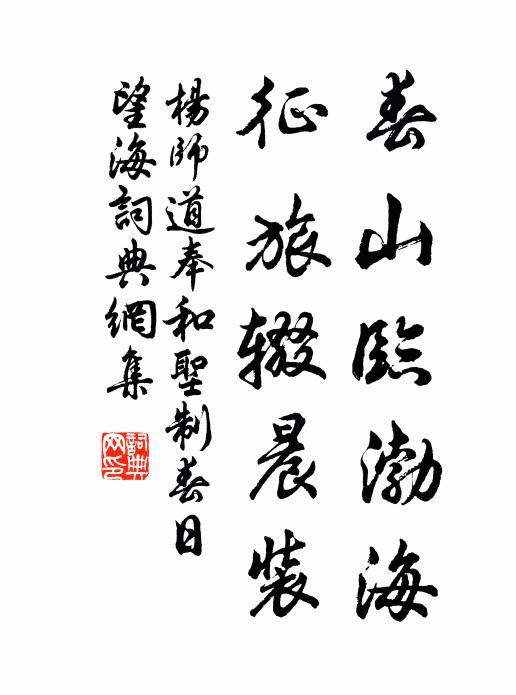 春山臨渤海
征旅辍晨裝
楊師道奉和聖制春日
望海詞典網集
詞典
网印